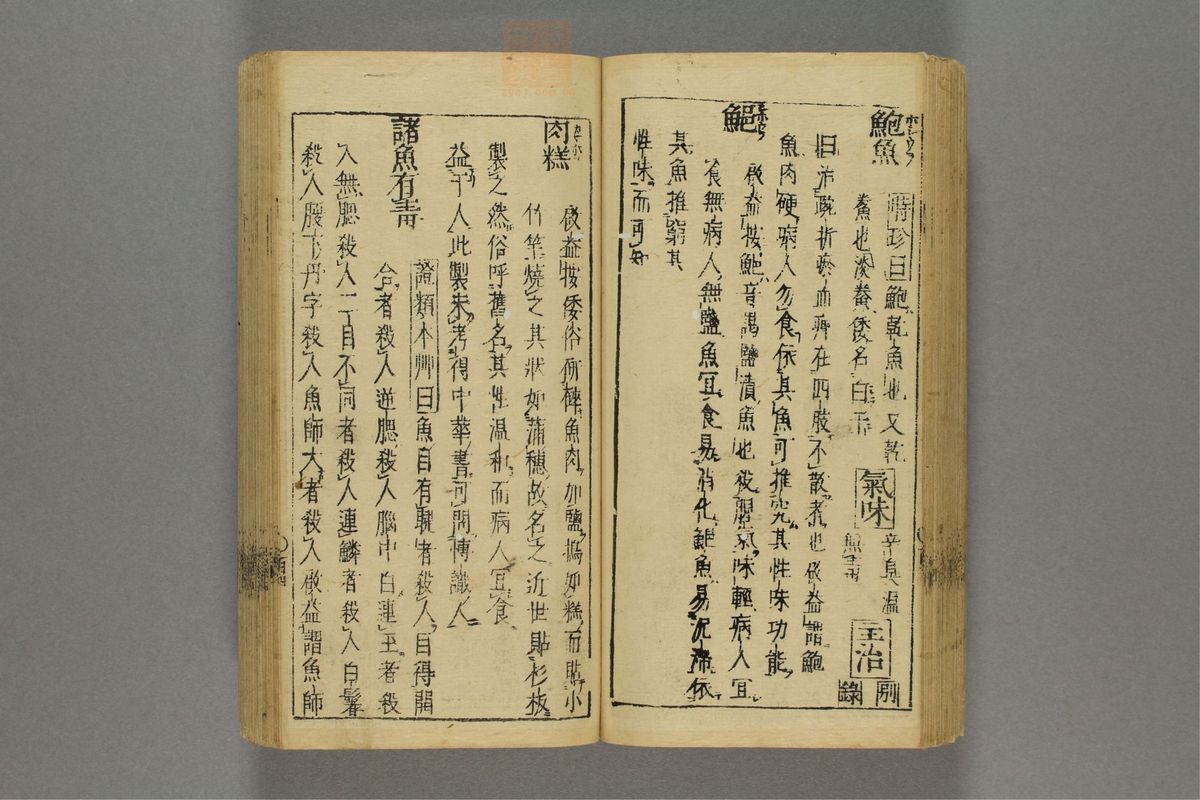 鮑魚
時珍曰鮑乾魚也又乾
鯗也淡鯗倭名白干 氣味 辛臭温無毒 主治 別錄
曰治踠折瘀血痺在四肢不散者也啟益謂鮑
魚肉硬病人勿食依其魚可推究其性味功能
䱒 啟益按䱒音 鹽漬魚也 氣味輕病人宜
食無病人無鹽魚冝食易消化 魚易沉滯依
其魚推窮其
性味而可知
肉糕
啟益按倭俗所 魚肉加鹽搗如糕而貼小
竹笨燒之其狀如蒲穗故名之近世貼杉板
製之然俗呼舊名其性温和而病人冝食
益于人此製未考得中華書可問博識人
諸魚有毒
證類本艸曰魚目有睫者殺人目得開
合者殺人逆腮殺人腦中白連王者殺
人無腮殺人二目不同者殺人連鱗者殺人白鬐
殺人腹下丹字殺人魚師大者殺人啟益謂魚師